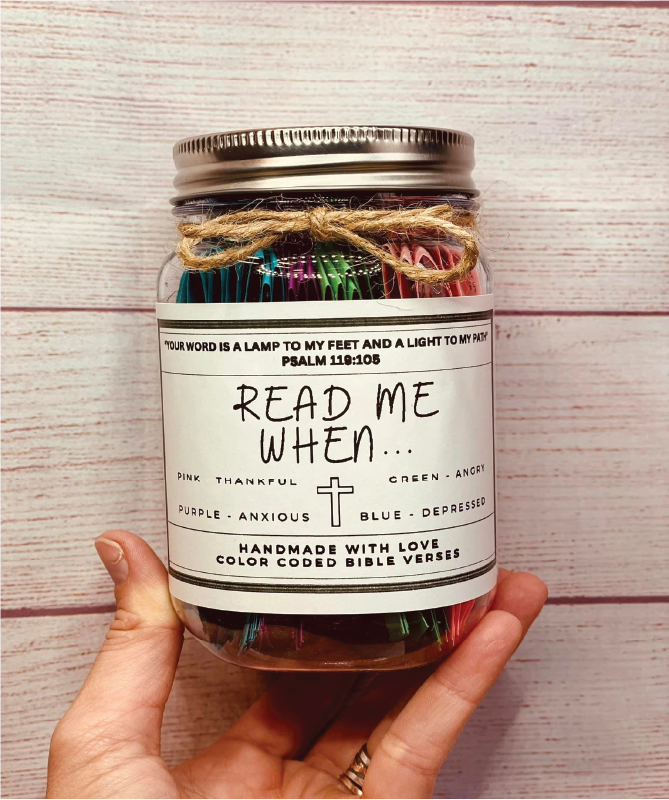 "YOUR WORD IS A LAMP TO MY FEET AND A LIGHT TO MY PATH"
PSALM 119:105
READ ME
WHEN...
PINK THANKFUL
GREEN - ANGRY
PURPLE - ANXIOUS
BLUE - DEPRESSED
HANDMADE WITH LOVE
COLOR CODED BIBLE VERSES